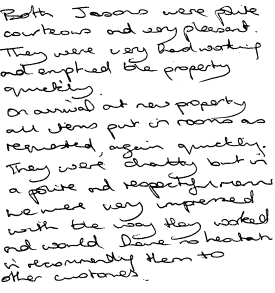 Both Jasons were polite
courteous and very pleasant.
They were very hardworking
and emptied the property
quickly.
On arrival at new property
all items put in rooms as
requested, again quickly.
They were chatty but in
a polite and respectful manner
we were very impressed
with the way they worked
and would have no hesitation
in recommending them to
other customers.